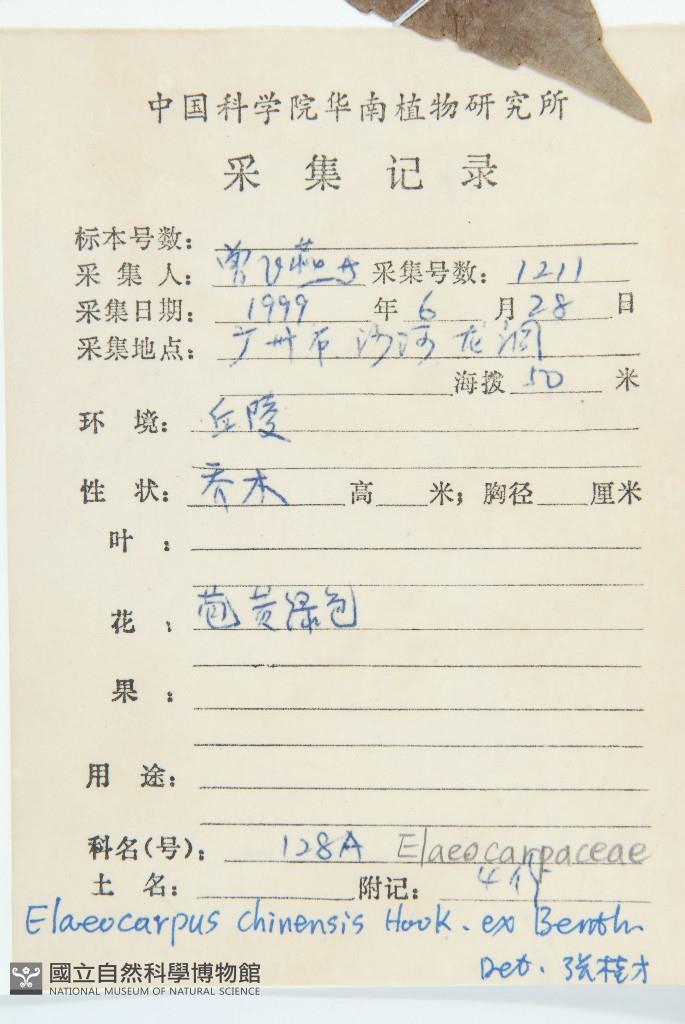 中国科学院华南植物研究所
采集记录
标本号数:
采集人: 曾飞燕 采集号数: 1211
采集日期: 1999 年 6 月 28 日
采集地点: 广州市 沙河 龙洞
海拨 50 米
环境: 丘陵
性状: 乔木 高 米; 胸径 厘米
叶:
花: 苞黄绿色
果:
用途:
科名(号): 128A Elaeocarpaceae
土名: 附记: 4份
Elaeocarpus chinensis Hook. ex Benth.
Det. 张桂才
國立自然科學博物館
NATIONAL MUSEUM OF NATURAL SCIENCE